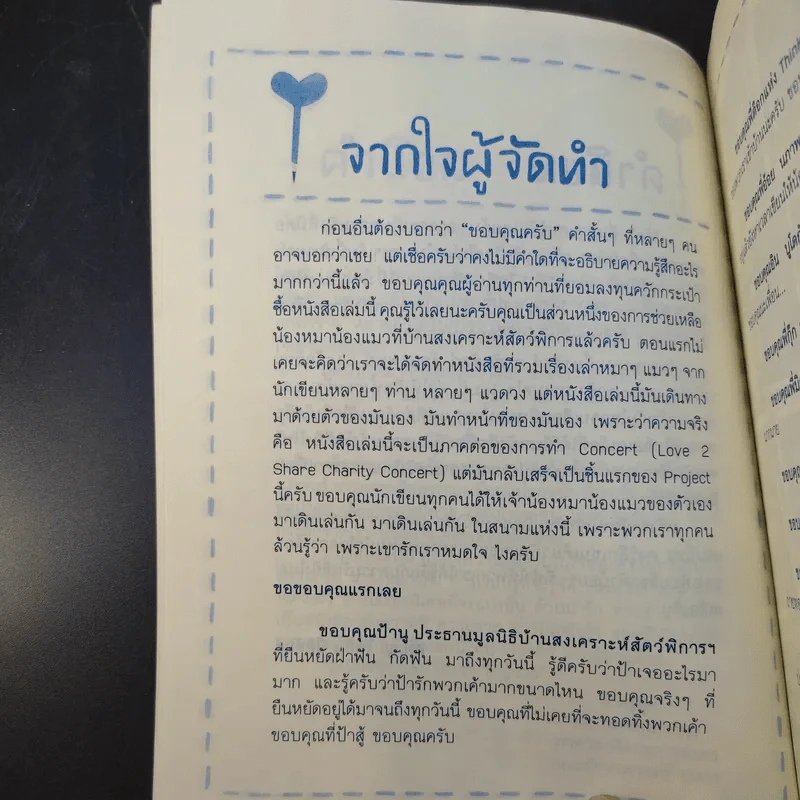 จากใจผู้จัดทำ
ก่อนอื่นต้องบอกว่า “ขอบคุณครับ” คำสั้นๆ ที่หลายๆ คน
อาจบอกว่าเชย แต่เชื่อครับว่าคงไม่มีคำใดที่จะอธิบายความรู้สึกอะไร
มากกว่านี้แล้ว ขอบคุณคุณผู้อ่านทุกท่านที่ยอมลงทุนควักกระเป๋า
ซื้อหนังสือเล่มนี้ คุณรู้ไว้เลยนะครับคุณเป็นส่วนหนึ่งของการช่วยเหลือ
น้องหมาน้องแมวที่บ้านสงเคราะห์สัตว์พิการแล้วครับ ตอนแรกไม่
เคยจะคิดว่าเราจะได้จัดทำหนังสือที่รวมเรื่องเล่าหมาๆ แมวๆ จาก
นักเขียนหลายๆ ท่าน หลายๆ แวดวง แต่หนังสือเล่มนี้มันเดินทาง
มาด้วยตัวของมันเอง มันทำหน้าที่ของมันเอง เพราะว่าความจริง
คือ หนังสือเล่มนี้จะเป็นภาคต่อของการทำ Concert (Love 2
Share Charity Concert) แต่มันกลับเสร็จเป็นชิ้นแรกของ Project
นี้ครับ ขอบคุณนักเขียนทุกคนได้ให้เจ้าน้องหมาน้องแมวของตัวเอง
มาเดินเล่นกัน มาเดินเล่นกัน ในสนามแห่งนี้ เพราะพวกเราทุกคน
ล้วนรู้ว่า เพราะเขารักเราหมดใจ ไงครับ
ขอขอบคุณแรกเลย
ขอบคุณป้านู ประธานมูลนิธิบ้านสงเคราะห์สัตว์พิการฯ
ที่ยืนหยัดฝ่าฟัน กัดฟัน มาถึงทุกวันนี้ รู้ดีครับว่าป้าเจออะไรมา
มาก และรู้ครับว่าป้ารักพวกเค้ามากขนาดไหน ขอบคุณจริงๆ ที่
ยืนหยัดอยู่ได้มาจนถึงทุกวันนี้ ขอบคุณที่ไม่เคยที่จะทอดทิ้งพวกเค้า
ขอบคุณที่ป้าสู้ ขอบคุณครับ
ขอบคุณพี่ต็อกแห่ง Think
ขอบคุณพี่อ้อย นภาพ
ขอบคุณพี่กุ๊ก